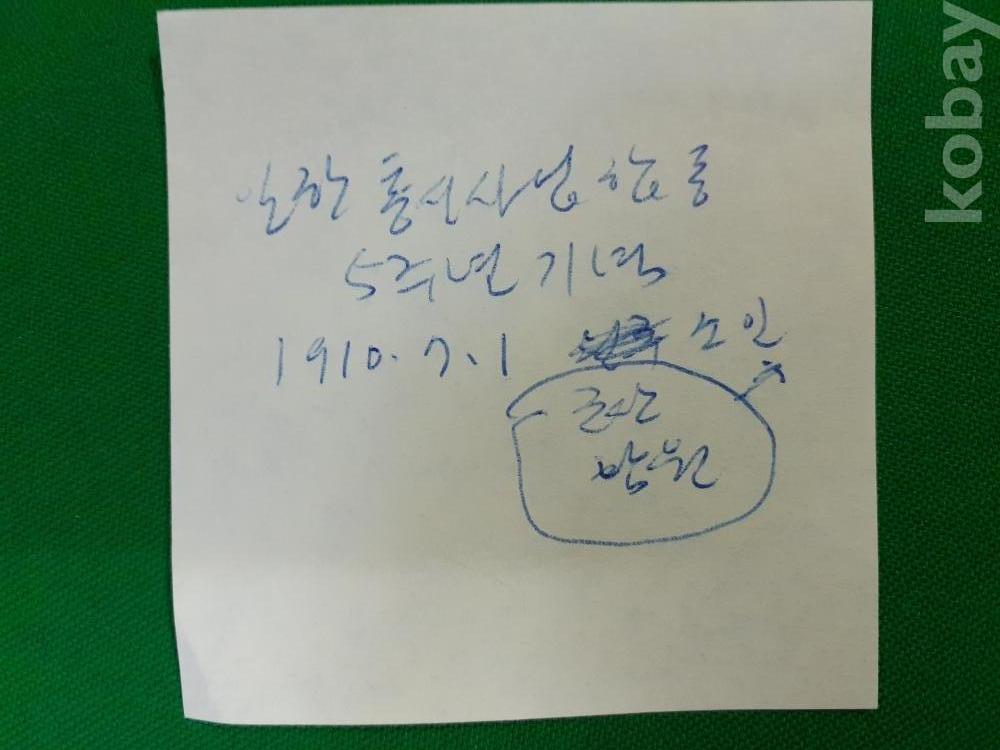 일한통신사업합동
5주년기념
1910.7.1 소인
군산
kobay